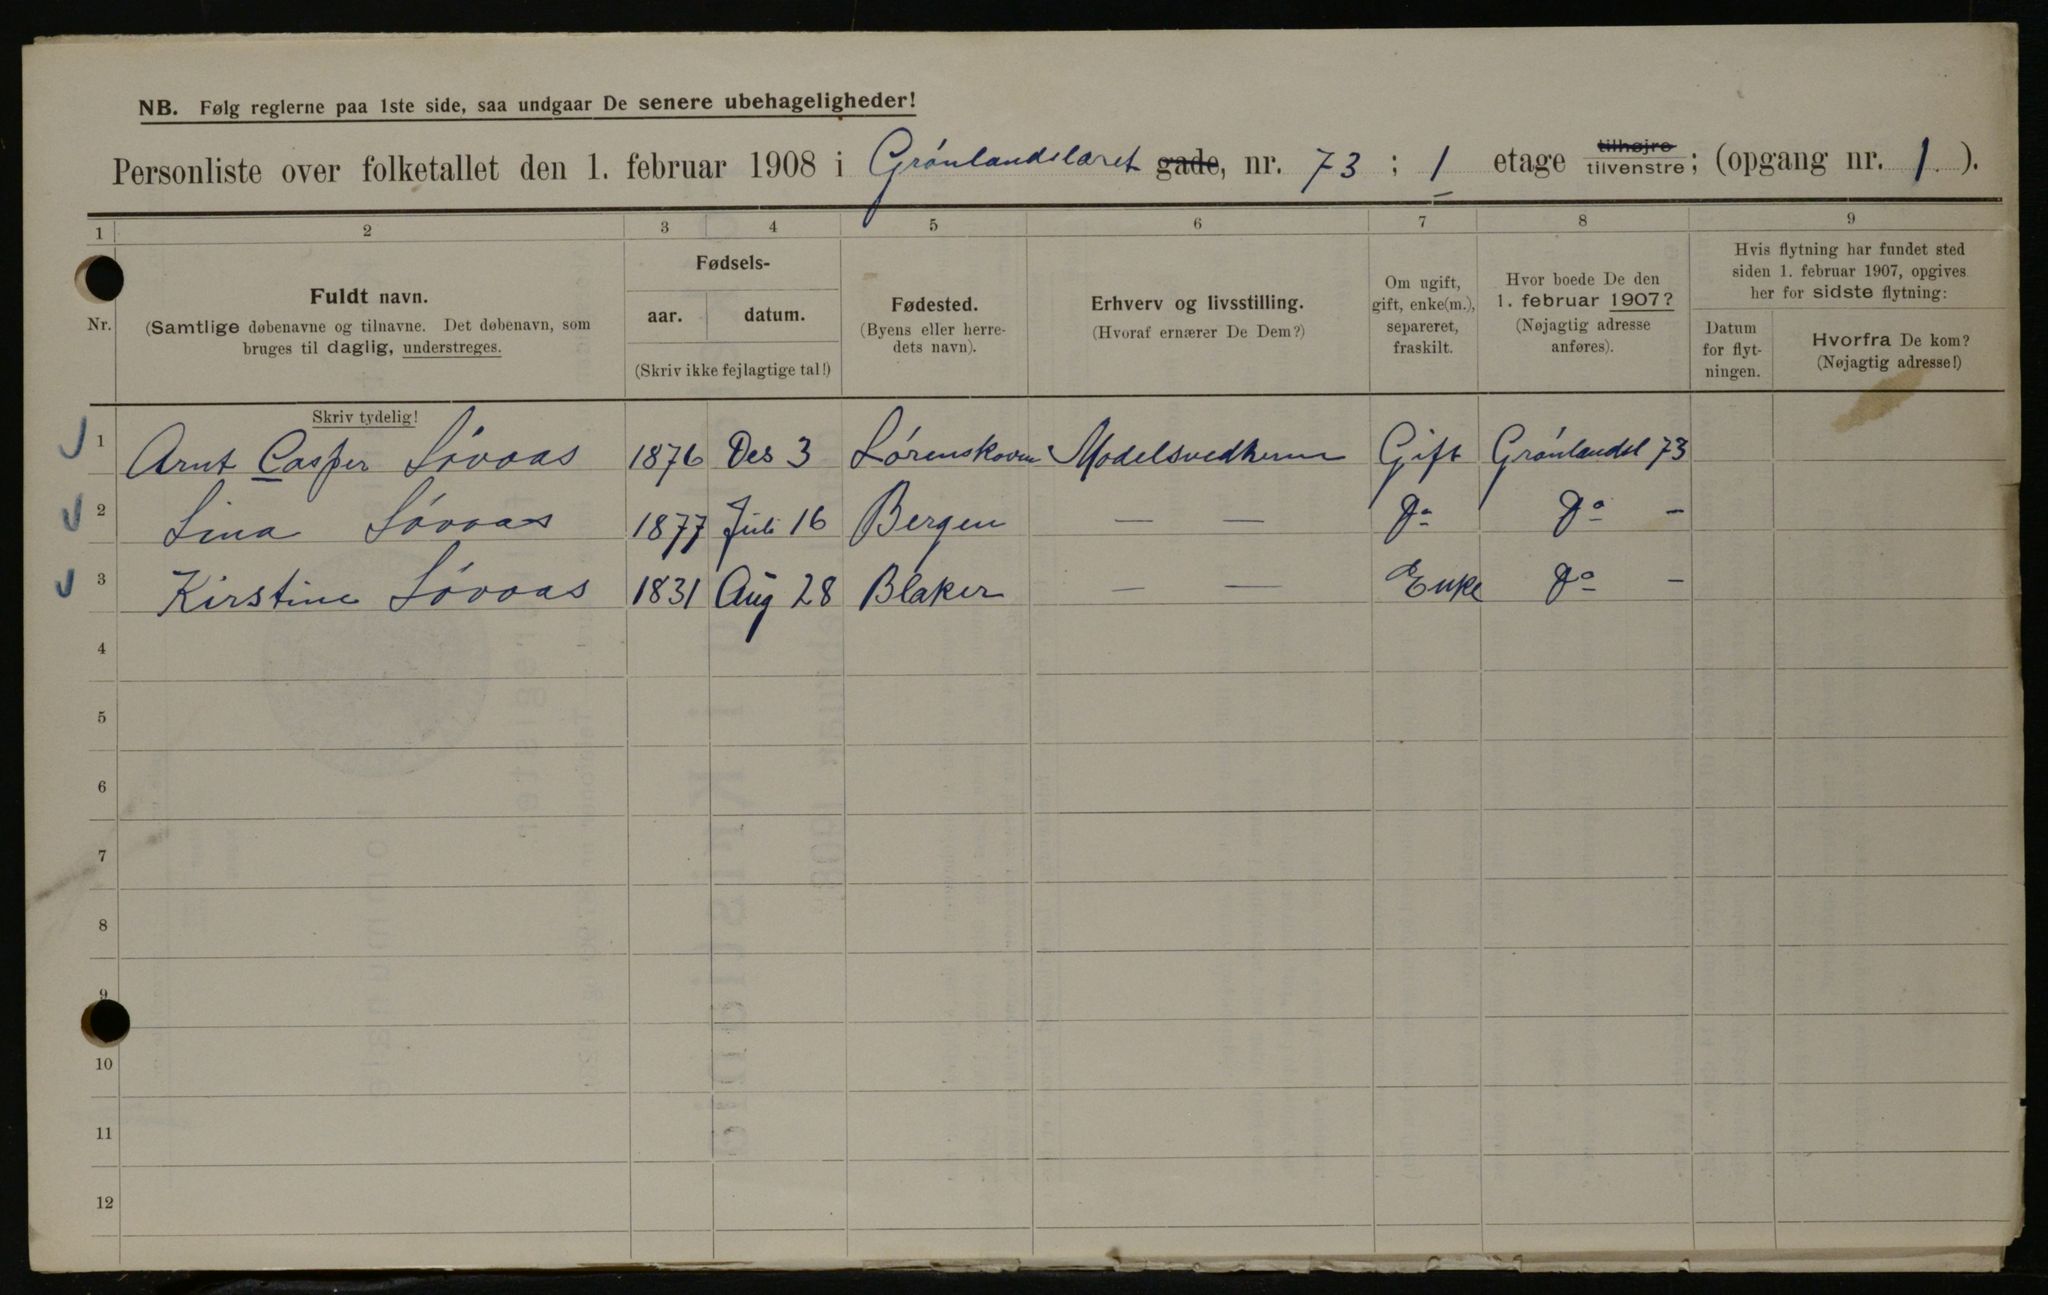 NB. Følg reglerne paa 1ste side, saa undgaar De senere ubehageligheder!
Personliste over folketallet den 1. februar 1908 i Grønlandsleret gade, nr. 73 ; 1 etage tilhøjre tilvenstre; (opgang nr. 1.).
1 2 3 4 5 6 7 8 9
Nr.
Fuldt navn.
(Samtlige døbenavne og tilnavne. Det døbenavn, som
bruges til daglig, understreges.
Skriv tydelig!
Fødsels-
aar. datum.
(Skriv ikke fejlagtige tal!)
Fødested.
(Byens eller herre-
dets navn).
Erhverv og livsstilling.
(Hvoraf ernærer De Dem?)
Om ugift,
gift, enke(m.),
separeret,
fraskilt.
Hvor boede De den
1. februar 1907?
(Nøjagtig adresse
anføres).
Hvis flytning har fundet sted
siden 1. februar 1907, opgives
her for sidste flytning:
Datum
for flyt-
ningen.
Hvorfra De kom?
(Nøjagtig adresse!)
1 Arnt Casper Løvaas 1876 Des 3 Lørenskoven Gift Grønlandsl 73
2 Lina Løvaas 1877 Juli 16 Bergen — — Do Do -
3 Kirstine Løvaas 1831 Aug 28 Blaker — — Enke Do -
4
5
6
7
8
9
10
11
12